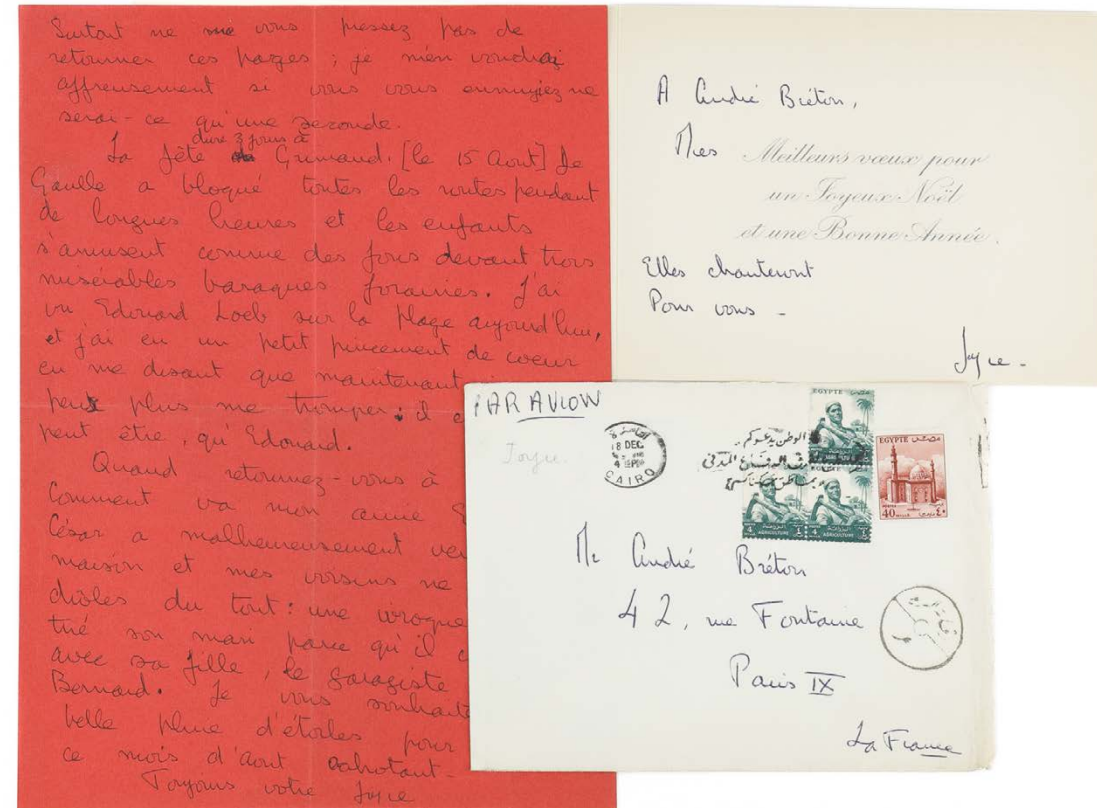 Surtout ne me vous pressez pas de
retourner ces pages ; je m'en voudrai
affreusement si vous vous ennuyiez ne
serai-ce qu'une seconde.
dure 3 jours à
La fête Grimaud. [le 15 Aout] De
Gaulle a bloqué toutes les routes pendant
de longues heures et les enfants
s'amusent comme des fous devant trois
misérables baraques foraines. J'ai
vu Edouard Loeb sur la plage aujourd'hui,
et j'ai eu un petit pincement de coeur
en me disant que maintenant
peux plus me tromper : il
peut être, qu'Edouard.
Quand retournez-vous à
Comment va mon amie
César a malheureusement
maison et mes voisins ne
drôles du tout : une
tué son mari parce qu'il
avec sa fille, le garagiste
Bernard. Je vous souhaite
belle pluie d'étoiles pour
ce mois d'aout cahotant.
Toujours votre Joyce
A André Bréton,
Mes Meilleurs vœux pour
un Joyeux Noël
et une Bonne Année.
Elles chanteront
Pour vous -
Joyce.
PAR AVION
Joyce.
القاهرة
18 DEC
4 PM
CAIRO
الوطن يدعوكم
EGYPTE مصر
AGRICULTURE
4 AGRICULTURE
4 AGRICULTURE
EGYPTE مصر
40 MILLS ٤٠
Mr André Bréton
42, rue Fontaine
Paris IX
La France